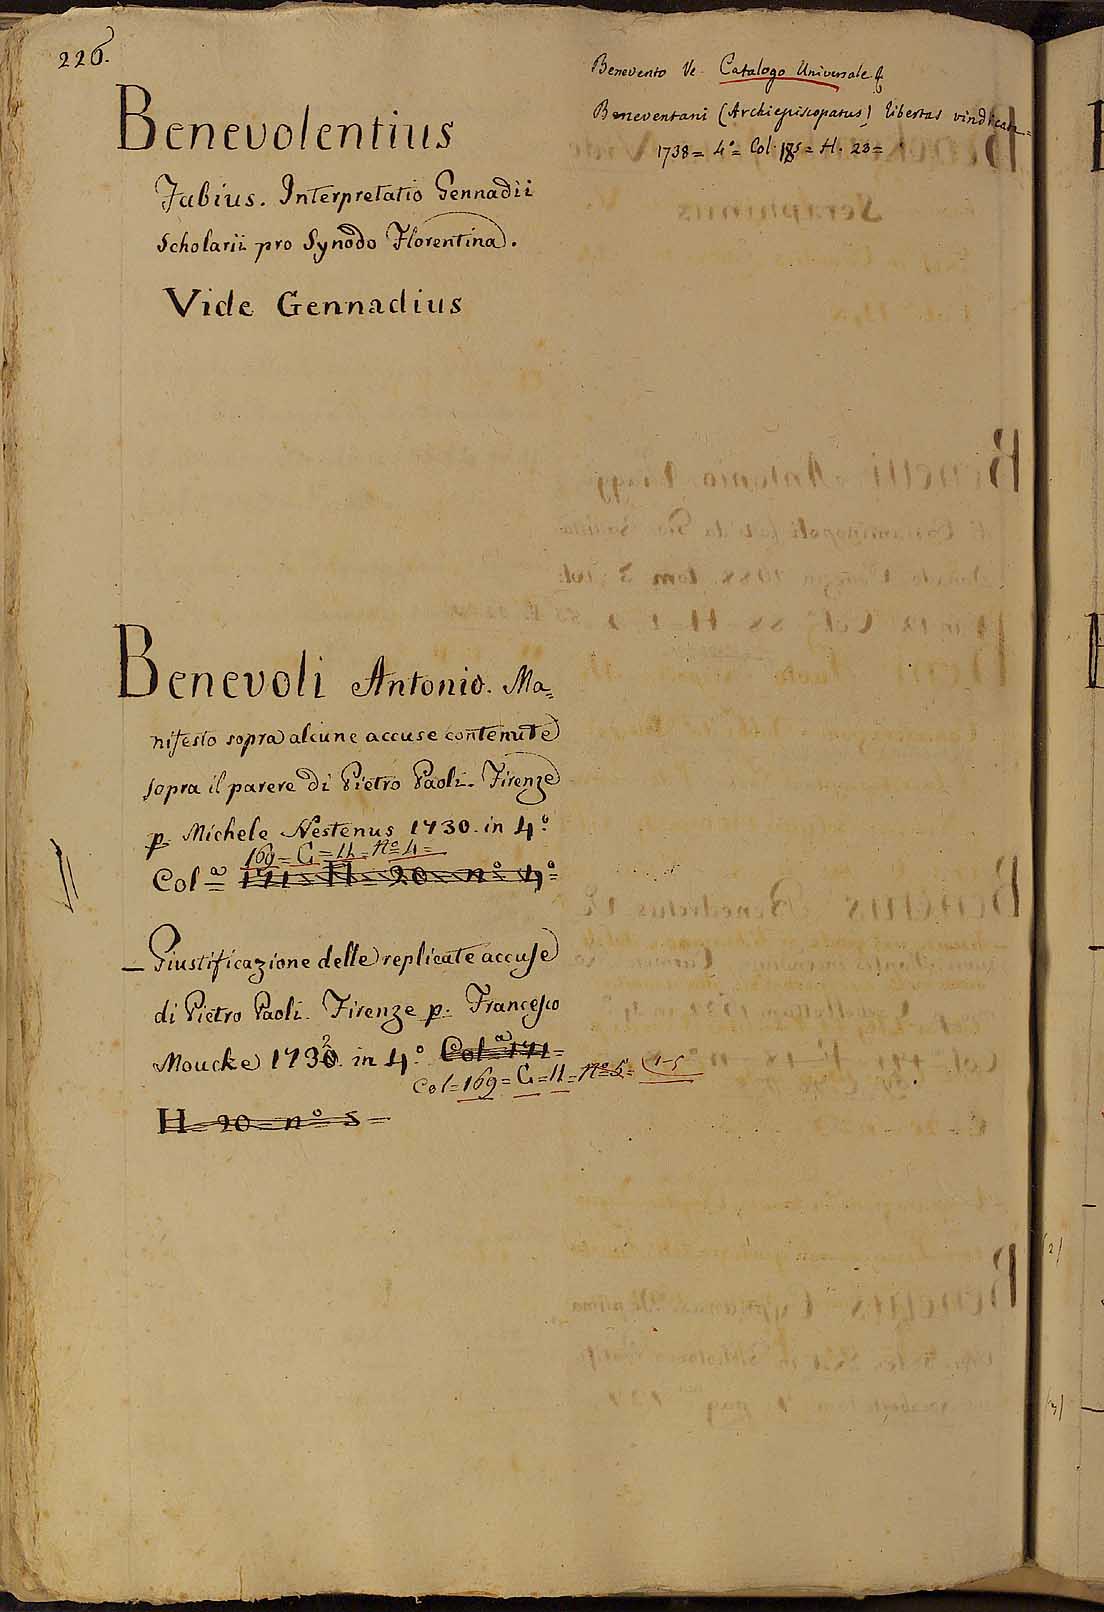 226.
Benevolentius
Fabius. Interpretatio Gennadii
Scholarii pro Synodo Florentina.
Vide Gennadius
Benevento Ve Catalogo Universale &
Beneventani (Archiepiscopatus) libertas vindicata =
1738 = 4º = Col. 185 = H. 23 =
Benevoli Antonio. Ma=
nifesto sopra alcune accuse contenute
sopra il parere di Pietro Paoli. Firenze
p. Michele Nestenus 1730. in 4.º
169 = C = 11 = nº = 4 =
Col.ª 171 = H = 20 = nº 4.º
_ Giustificazione delle replicate accuse
di Pietro Paoli. Firenze p. Francesco
Moucke 1732. in 4.º Col.ª 171 =
Col = 169 = C = 11 = nº 5 = 1-5
H = 20 = nº 5 =